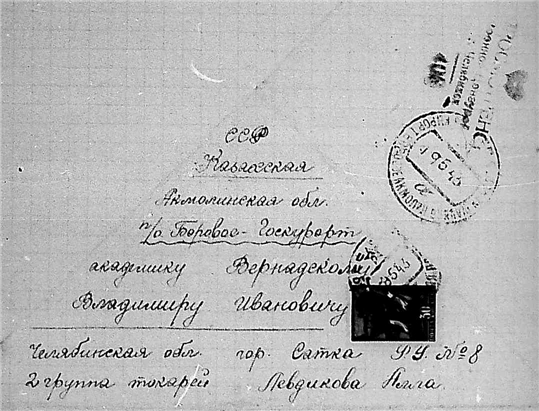 ССР
Казахская
Акмолинская обл.
п/о Боровое-Госкурорт
академику Вернадскому
Владимиру Ивановичу
Челябинская обл. гор. Сатка РУ №8
2 группа токарей Левдикова Алла.
50